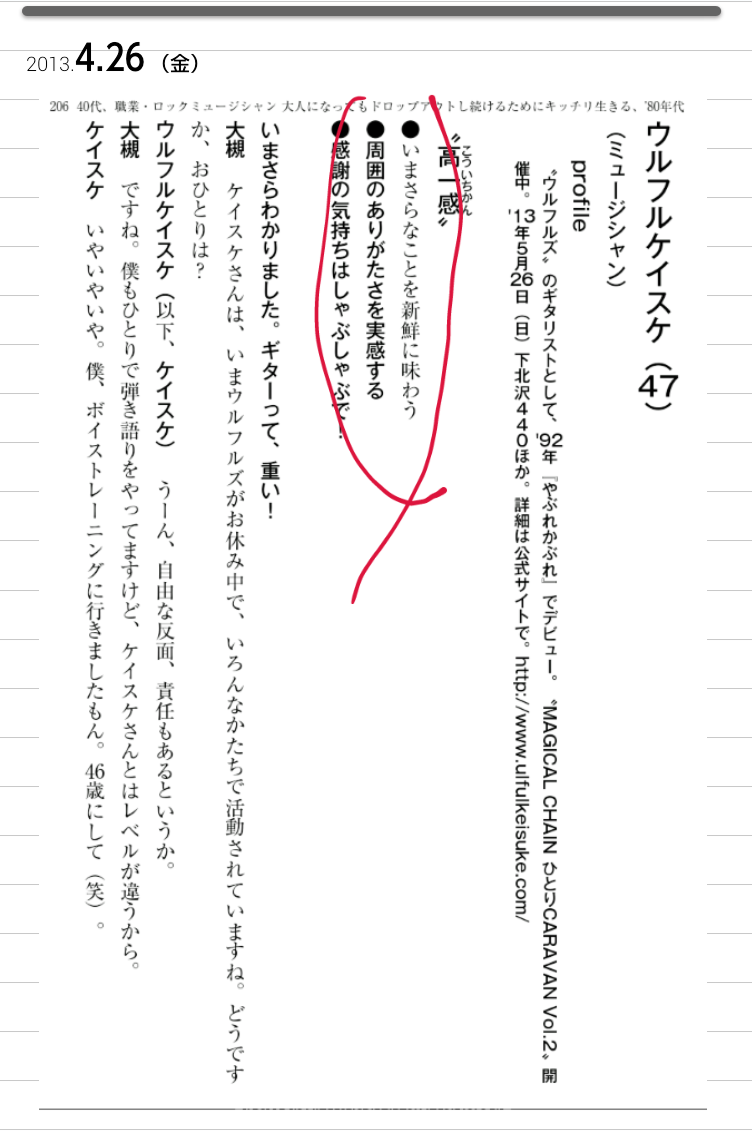 2013.4.26（金）
206 40代、職業・ロックミュージシャン 大人になってもドロップアウトし続けるためにキッチリ生きる、'80年代
ウルフルケイスケ（47）
（ミュージシャン）
profile
〝ウルフルズ〟のギタリストとして、'92年『やぶれかぶれ』でデビュー。〝MAGICAL CHAIN ひとりCARAVAN Vol.2〟開
催中。'13年5月26日（日）下北沢440ほか。詳細は公式サイトで。http://www.ulfulkeisuke.com/
〝高一感〟
こういちかん
●いまさらなことを新鮮に味わう
●周囲のありがたさを実感する
●感謝の気持ちはしゃぶしゃぶで！
いまさらわかりました。ギターって、重い！
大槻　ケイスケさんは、いまウルフルズがお休み中で、いろんなかたちで活動されていますね。どうです
か、おひとりは？
ウルフルケイスケ（以下、ケイスケ）　うーん、自由な反面、責任もあるというか。
大槻　ですね。僕もひとりで弾き語りをやってますけど、ケイスケさんとはレベルが違うから。
ケイスケ　いやいやいや。僕、ボイストレーニングに行きましたもん。46歳にして（笑）。